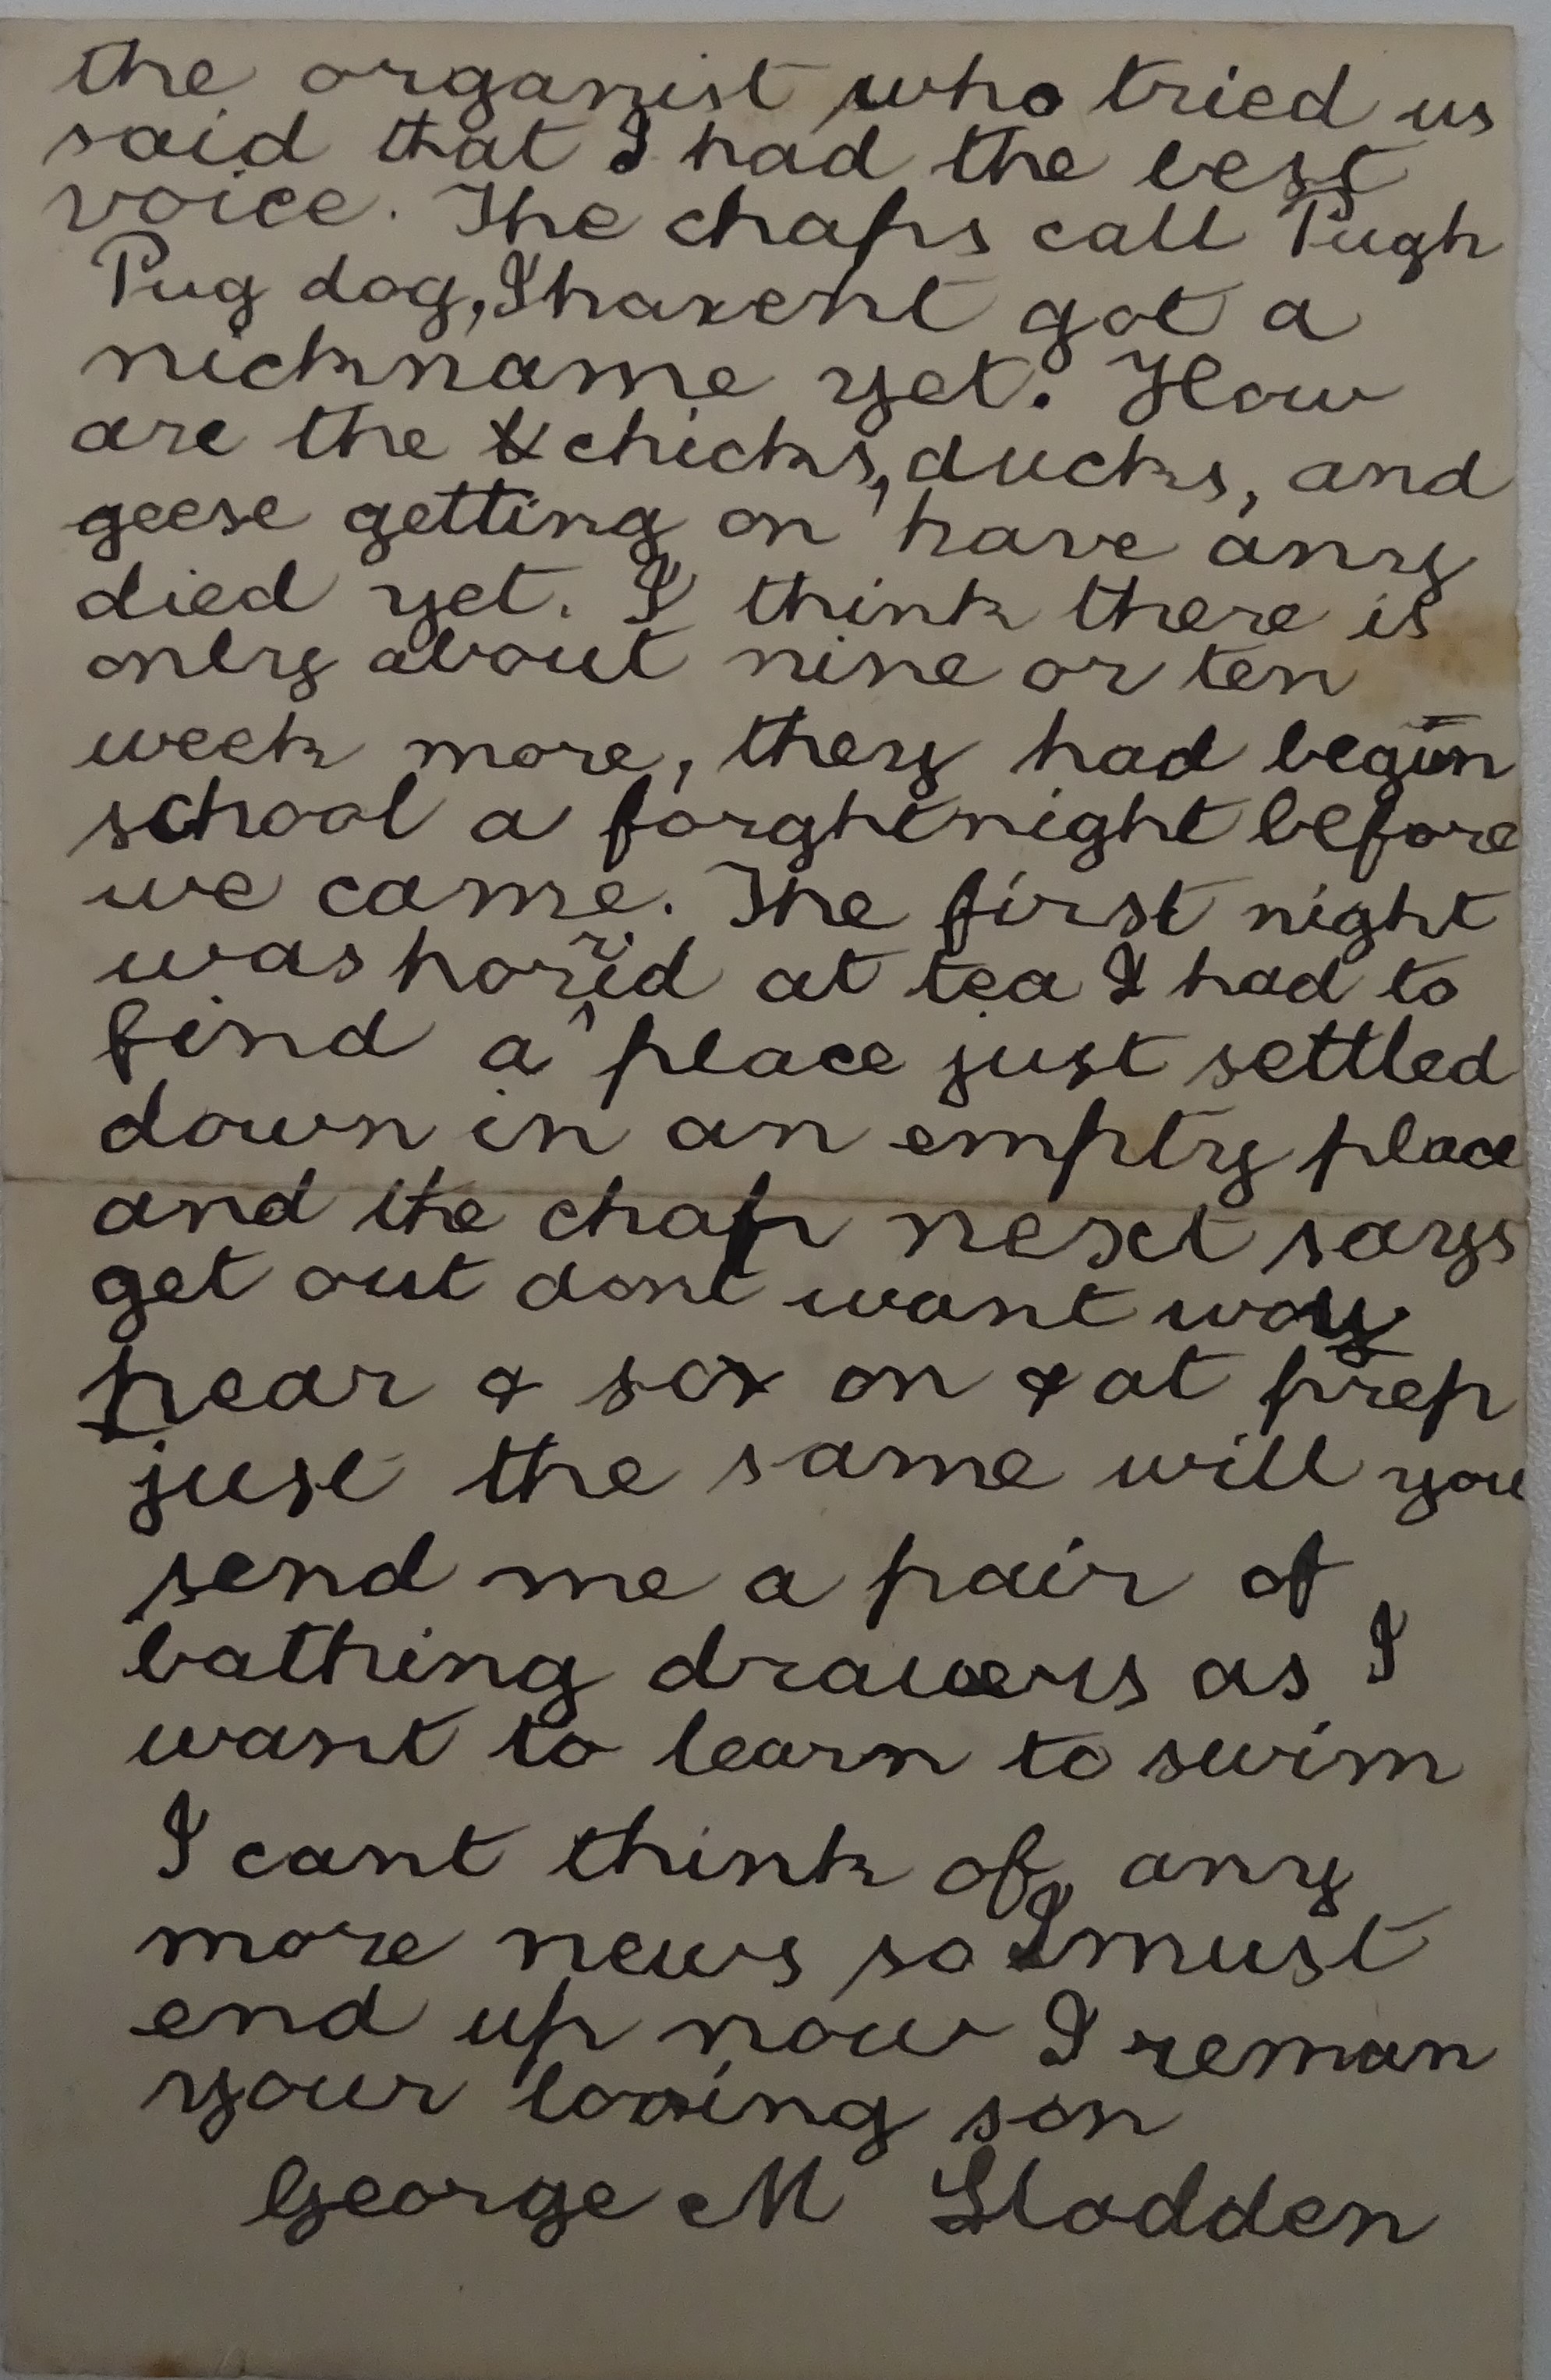 the organist who tried us
said that I had the best
voice. The chaps call Pugh
Pug dog, I havent got a
nickname yet. How
are the chicks, ducks, and
geese getting on have any
died yet. I think there is
only about nine or ten
week more, they had begun
school a forghtnight before
we came. The first night
was horrid at tea I had to
find a place just settled
down in an empty place
and the chap next says
get out dont want you
hear & so on & at prep
just the same will you
send me a pair of
bathing drawers as I
want to learn to swim
I cant think of any
more news so I must
end up now I reman
your loving son
George M Gladden